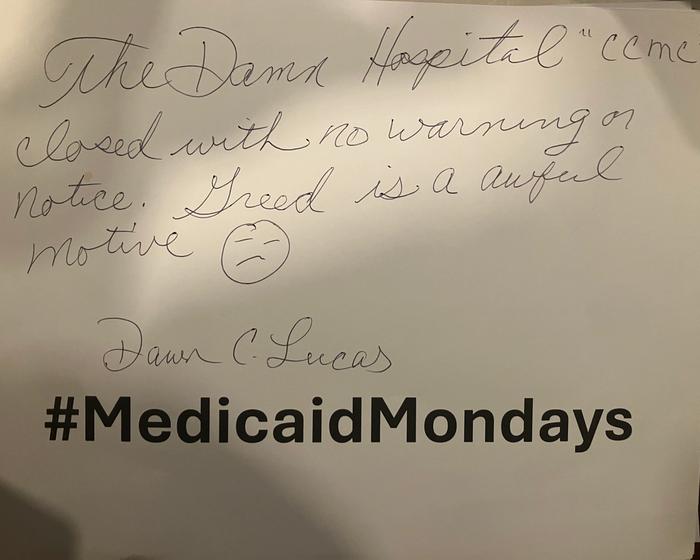 The Damn Hospital "CCMC
closed with no warning or
notice. Greed is a awful
motive
Dawn C. Lucas
#MedicaidMondays